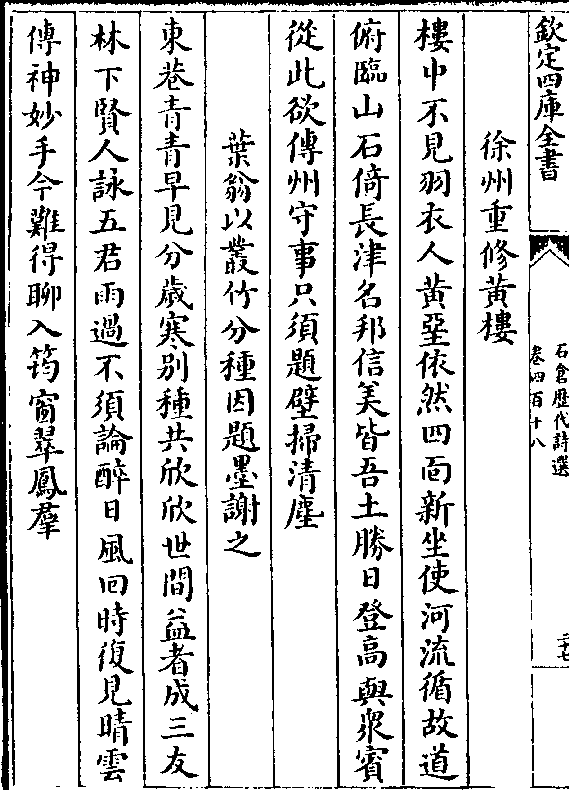 欽定四庫全書
石倉歴代詩選
卷四百十八
二十七
徐州重修黃樓
樓中不見羽衣人黃堊依然四面新坐使河流循故道
俯臨山石倚長津名邦信美皆吾土勝日登高與衆賓
從此欲傳州守事只須題壁掃清塵
葉翁以叢竹分種因題墨謝之
東巷青青早見分歲寒别種共欣欣世間益者成三友
林下賢人詠五君雨過不須論醉日風回時復見晴雲
傳神妙手今難得聊入筠窗翠鳳羣